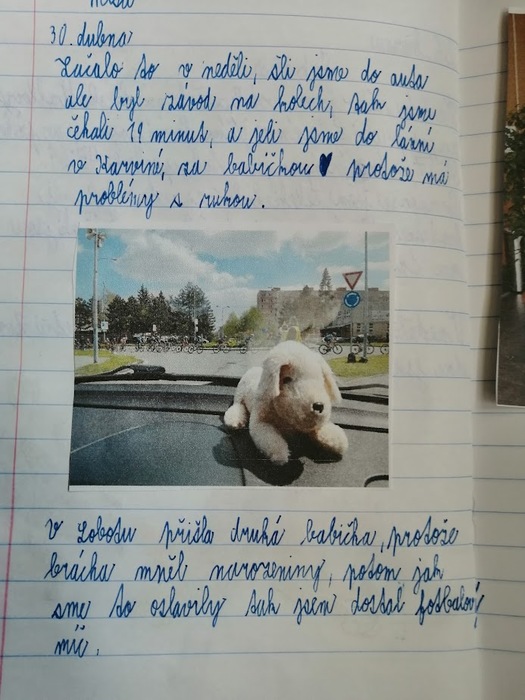 30. dubna
Začalo to v neděli, šli jsme do auta
ale byl závod na kolech, tak jsme
čekali 19 minut, a jeli jsme do lázní
v Karviné, za babičkou♥ protože má
problémy s rukou.
V sobotu přišla druhá babička, protože
brácha mněl narozeniny, potom jak
sme to oslavily tak jsem dostal fotbalový
míč.